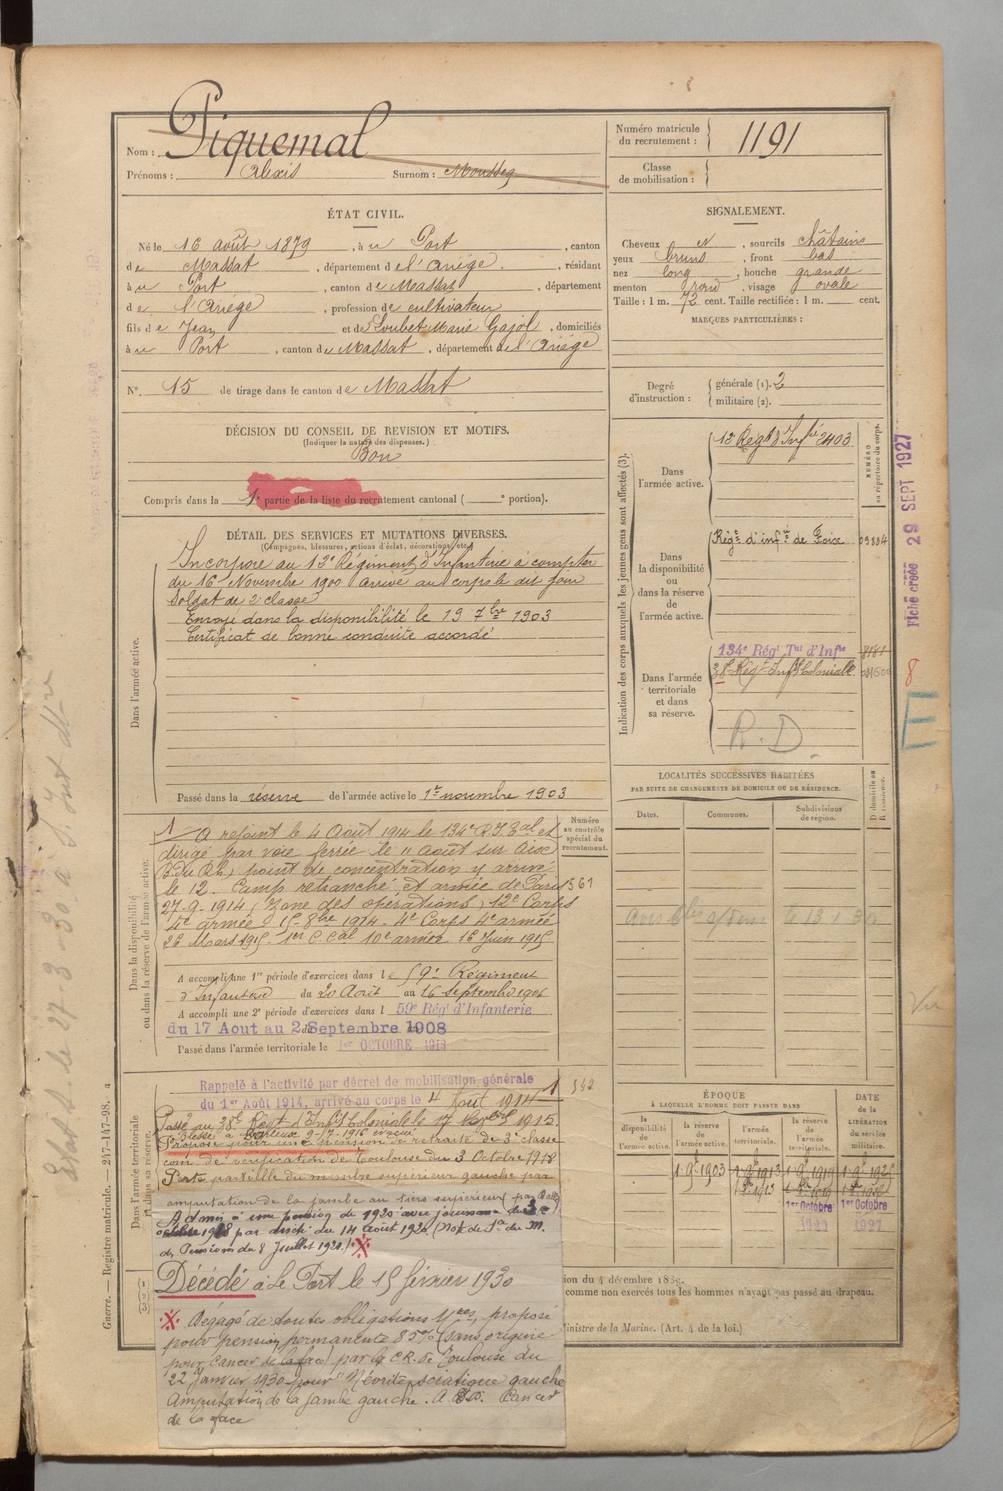 Nom : Piquemal
Prénoms : Alexis Surnom : Mousseq
Numéro matricule du recrutement : 1191
Classe de mobilisation :
ÉTAT CIVIL.
Né le 16 août 1879, à u Port, canton
de Massat, département de l'Ariège, résidant
à u Port, canton de Massat, département
de l'Ariège, profession de cultivateur
fils de Jean et de Loubet Marie Gajol, domiciliés
à u Port, canton de Massat, département de l'Ariège
N°. 15 de tirage dans le canton de Massat
SIGNALEMENT.
Cheveux et, sourcils châtains
yeux bruns, front bas
nez long, bouche grande
menton rond, visage ovale
Taille : 1 m. 72 cent. Taille rectifiée : 1 m. cent.
MARQUES PARTICULIÈRES :
Degré d'instruction : générale (1). 2
militaire (2).
DÉCISION DU CONSEIL DE REVISION ET MOTIFS.
(Indiquer la nature des dispenses.)
Bon
Compris dans la 1e partie de la liste du recrutement cantonal ( e portion).
DÉTAIL DES SERVICES ET MUTATIONS DIVERSES.
(Campagnes, blessures, actions d'éclat, décorations, etc.)
Dans l'armée active.
Incorporé au 12e Régiment d'Infanterie à compter
du 16 Novembre 1900 arrivé au corps le dit jour
Soldat de 2e classe
Envoyé dans la disponibilité le 19 7bre 1903
Certificat de bonne conduite accordé
Passé dans la réserve de l'armée active le 1er novembre 1903
Indication des corps auxquels les jeunes gens sont affectés (3).
NUMÉRO au répertoire du corps.
Dans l'armée active.
12 Régt d'Infie 2403
Dans la disponibilité ou dans la réserve de l'armée active.
Régt d'infie de Foix 09884
Dans l'armée territoriale et dans sa réserve.
134e Régt Tal d'Infie 8181
38e Régt Inf Coloniale
R.D.
Fiche créée 29 SEPT 1927
8
E
Dans la disponibilité ou dans la réserve de l'armée active.
Numéro au contrôle spécial du recrutement.
A rejoint le 4 Août 1914 le 134e R.I. Tal et
dirigé par voie ferrée le 11 août sur Aix
(B. du Rh.) point de concentration y arrivé
le 12. Camp retranché et armée de Paris 561
27-9-1914 (Zone des opérations) 12e Corps
4e armée 15-8bre 1914 - 4e Corps 4e armée
26 Mars 1915 - 1er C. Cal 10e armée 16 Juin 1915
A accompli une 1re période d'exercices dans le 59e Régiment
d'Infanterie du 20 Août au 16 septembre 1906
A accompli une 2e période d'exercices dans l 59e Régt d'Infanterie
du 17 Aout au 2 Septembre 1908
Passé dans l'armée territoriale le 1er OCTOBRE 1913
LOCALITÉS SUCCESSIVES HABITÉES
PAR SUITE DE CHANGEMENTS DE DOMICILE OU DE RÉSIDENCE.
Dates. Communes. Subdivisions de région. D domicile ou R résidence.
le 13 1 30
Vu
Dans l'armée territoriale et dans sa réserve.
Rappelé à l'activité par décret de mobilisation générale
du 1er Août 1914, arrivé au corps le 4 Août 1914
542
Passé au 38e Régt d'Inf Coloniale le 17 1915.
Blessé à Barleux 9-7-1916 évacué
Proposé pour une pension de retraite de 3e classe
com de vérification de Toulouse du 3 Octobre 1918
Perte partielle du membre supérieur gauche par
amputation de la jambe au tiers supérieur
Admis à une pension de 1920 avec jouissance du 3
octobre 1918 par arrêté du 14 Août 1920 (Not de Sce du M.
des Pensions du 8 Juillet 1921)
Décédé à Le Port le 15 février 1930
Dégagé de toutes obligations Mres, proposé
pour pension permanente 85% (sans origine
pour cancer de la face) par la C.R. de Toulouse du
22 Janvier 1930 pour Névrite sciatique gauche
Amputation de la jambe gauche. Cancer
de la face
ÉPOQUE
À LAQUELLE L'HOMME DOIT PASSER DANS
la disponibilité de l'armée active. la réserve de l'armée active. l'armée territoriale. la réserve de l'armée territoriale.
DATE de la LIBÉRATION du service militaire.
1 9bre 1903 1 9bre 1913 1 9bre 1919 1 9bre 1925
1er Octobre 1er Octobre
1927
ion du 4 décembre 1889.
comme non exercés tous les hommes n'ayant pas passé au drapeau.
Ministre de la Marine. (Art. 4 de la loi.)
Guerre. — Registre matricule. — 247-147-98.